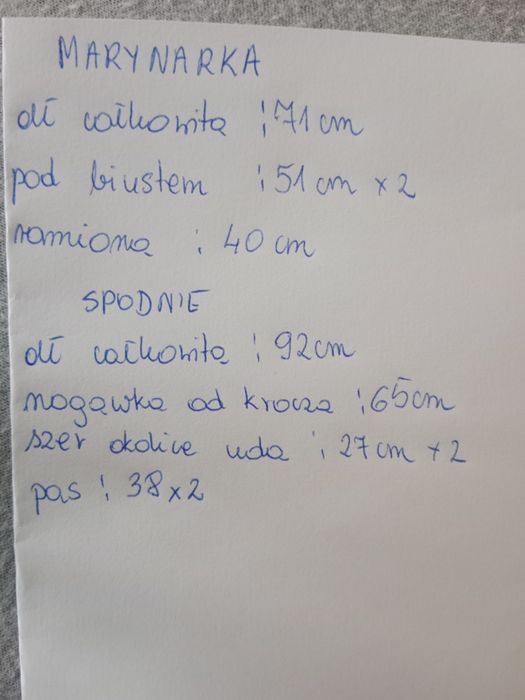 MARYNARKA
dł całkowita : 71 cm
pod biustem : 51 cm x 2
ramiona : 40 cm
SPODNIE
dł całkowita : 92cm
nogawka od krocza : 65cm
szer okolice uda : 27cm x 2
pas : 38 x 2